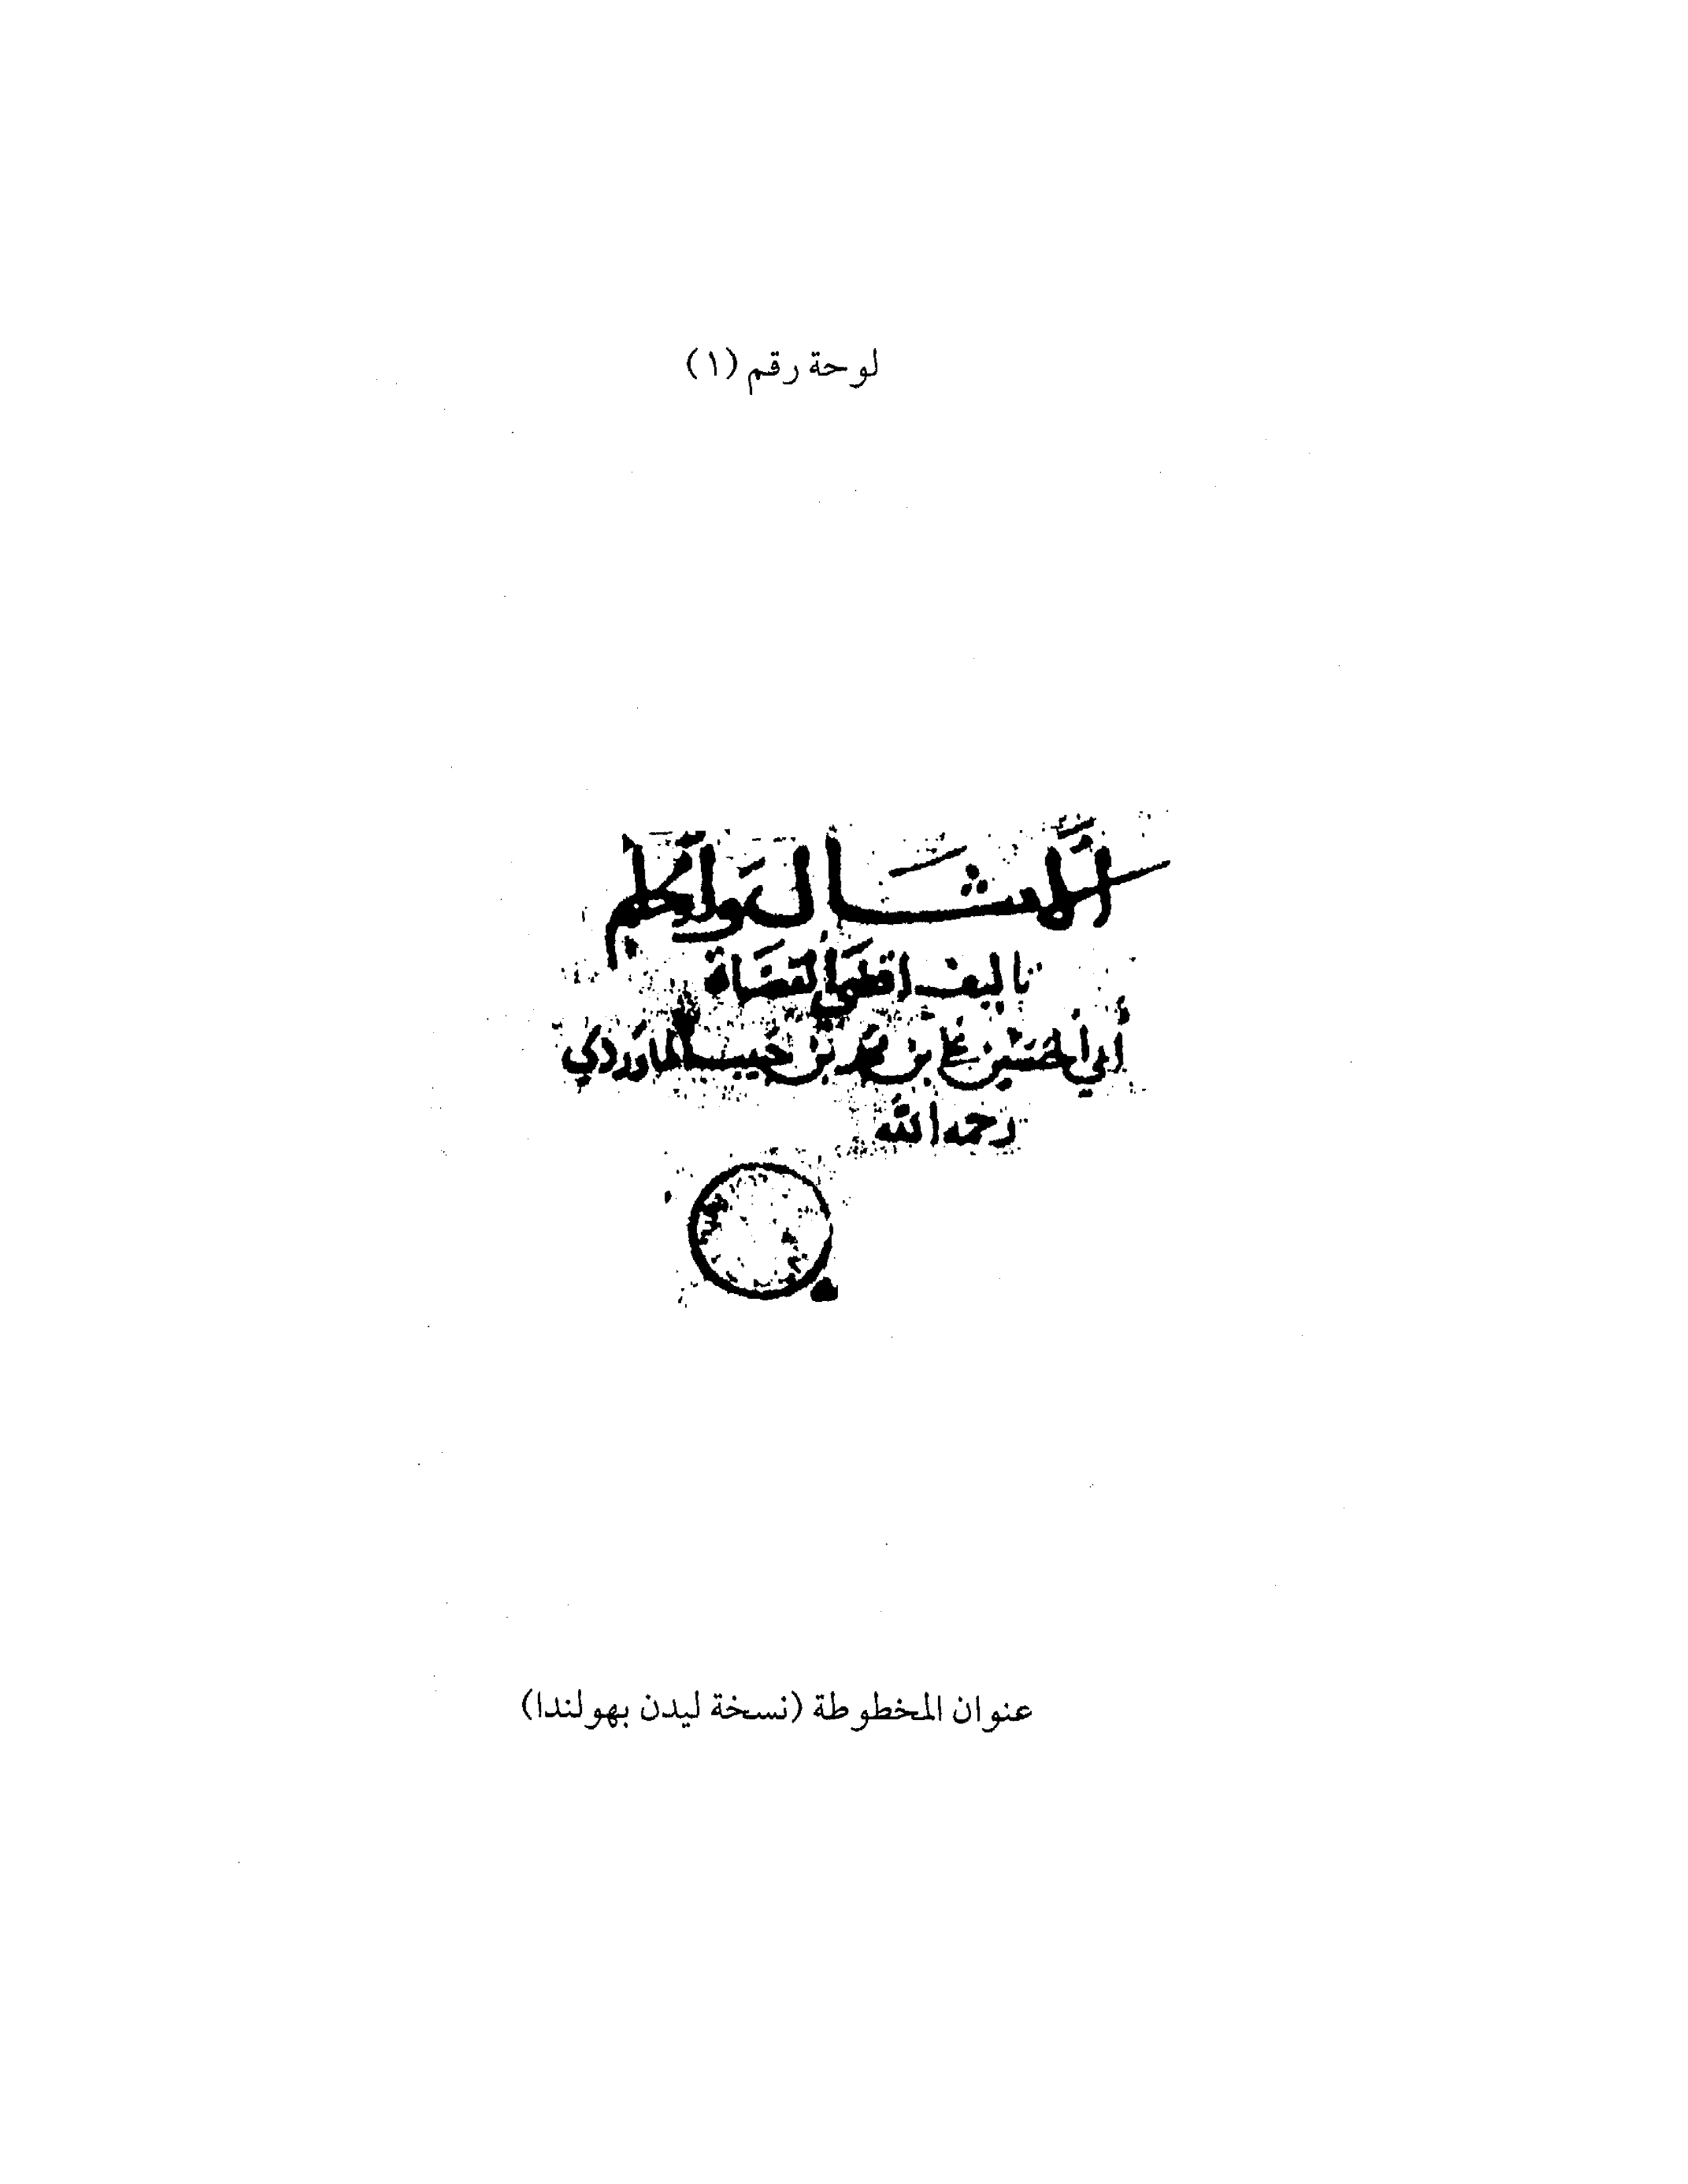 لوحة رقم (١)
الأمثال والحكم
تأليف اقضى القضاة
أبي الحسن علي بن محمد بن حبيب الماوردي
رحمه الله
عنوان المخطوطة (نسخة ليدن بهولندا)